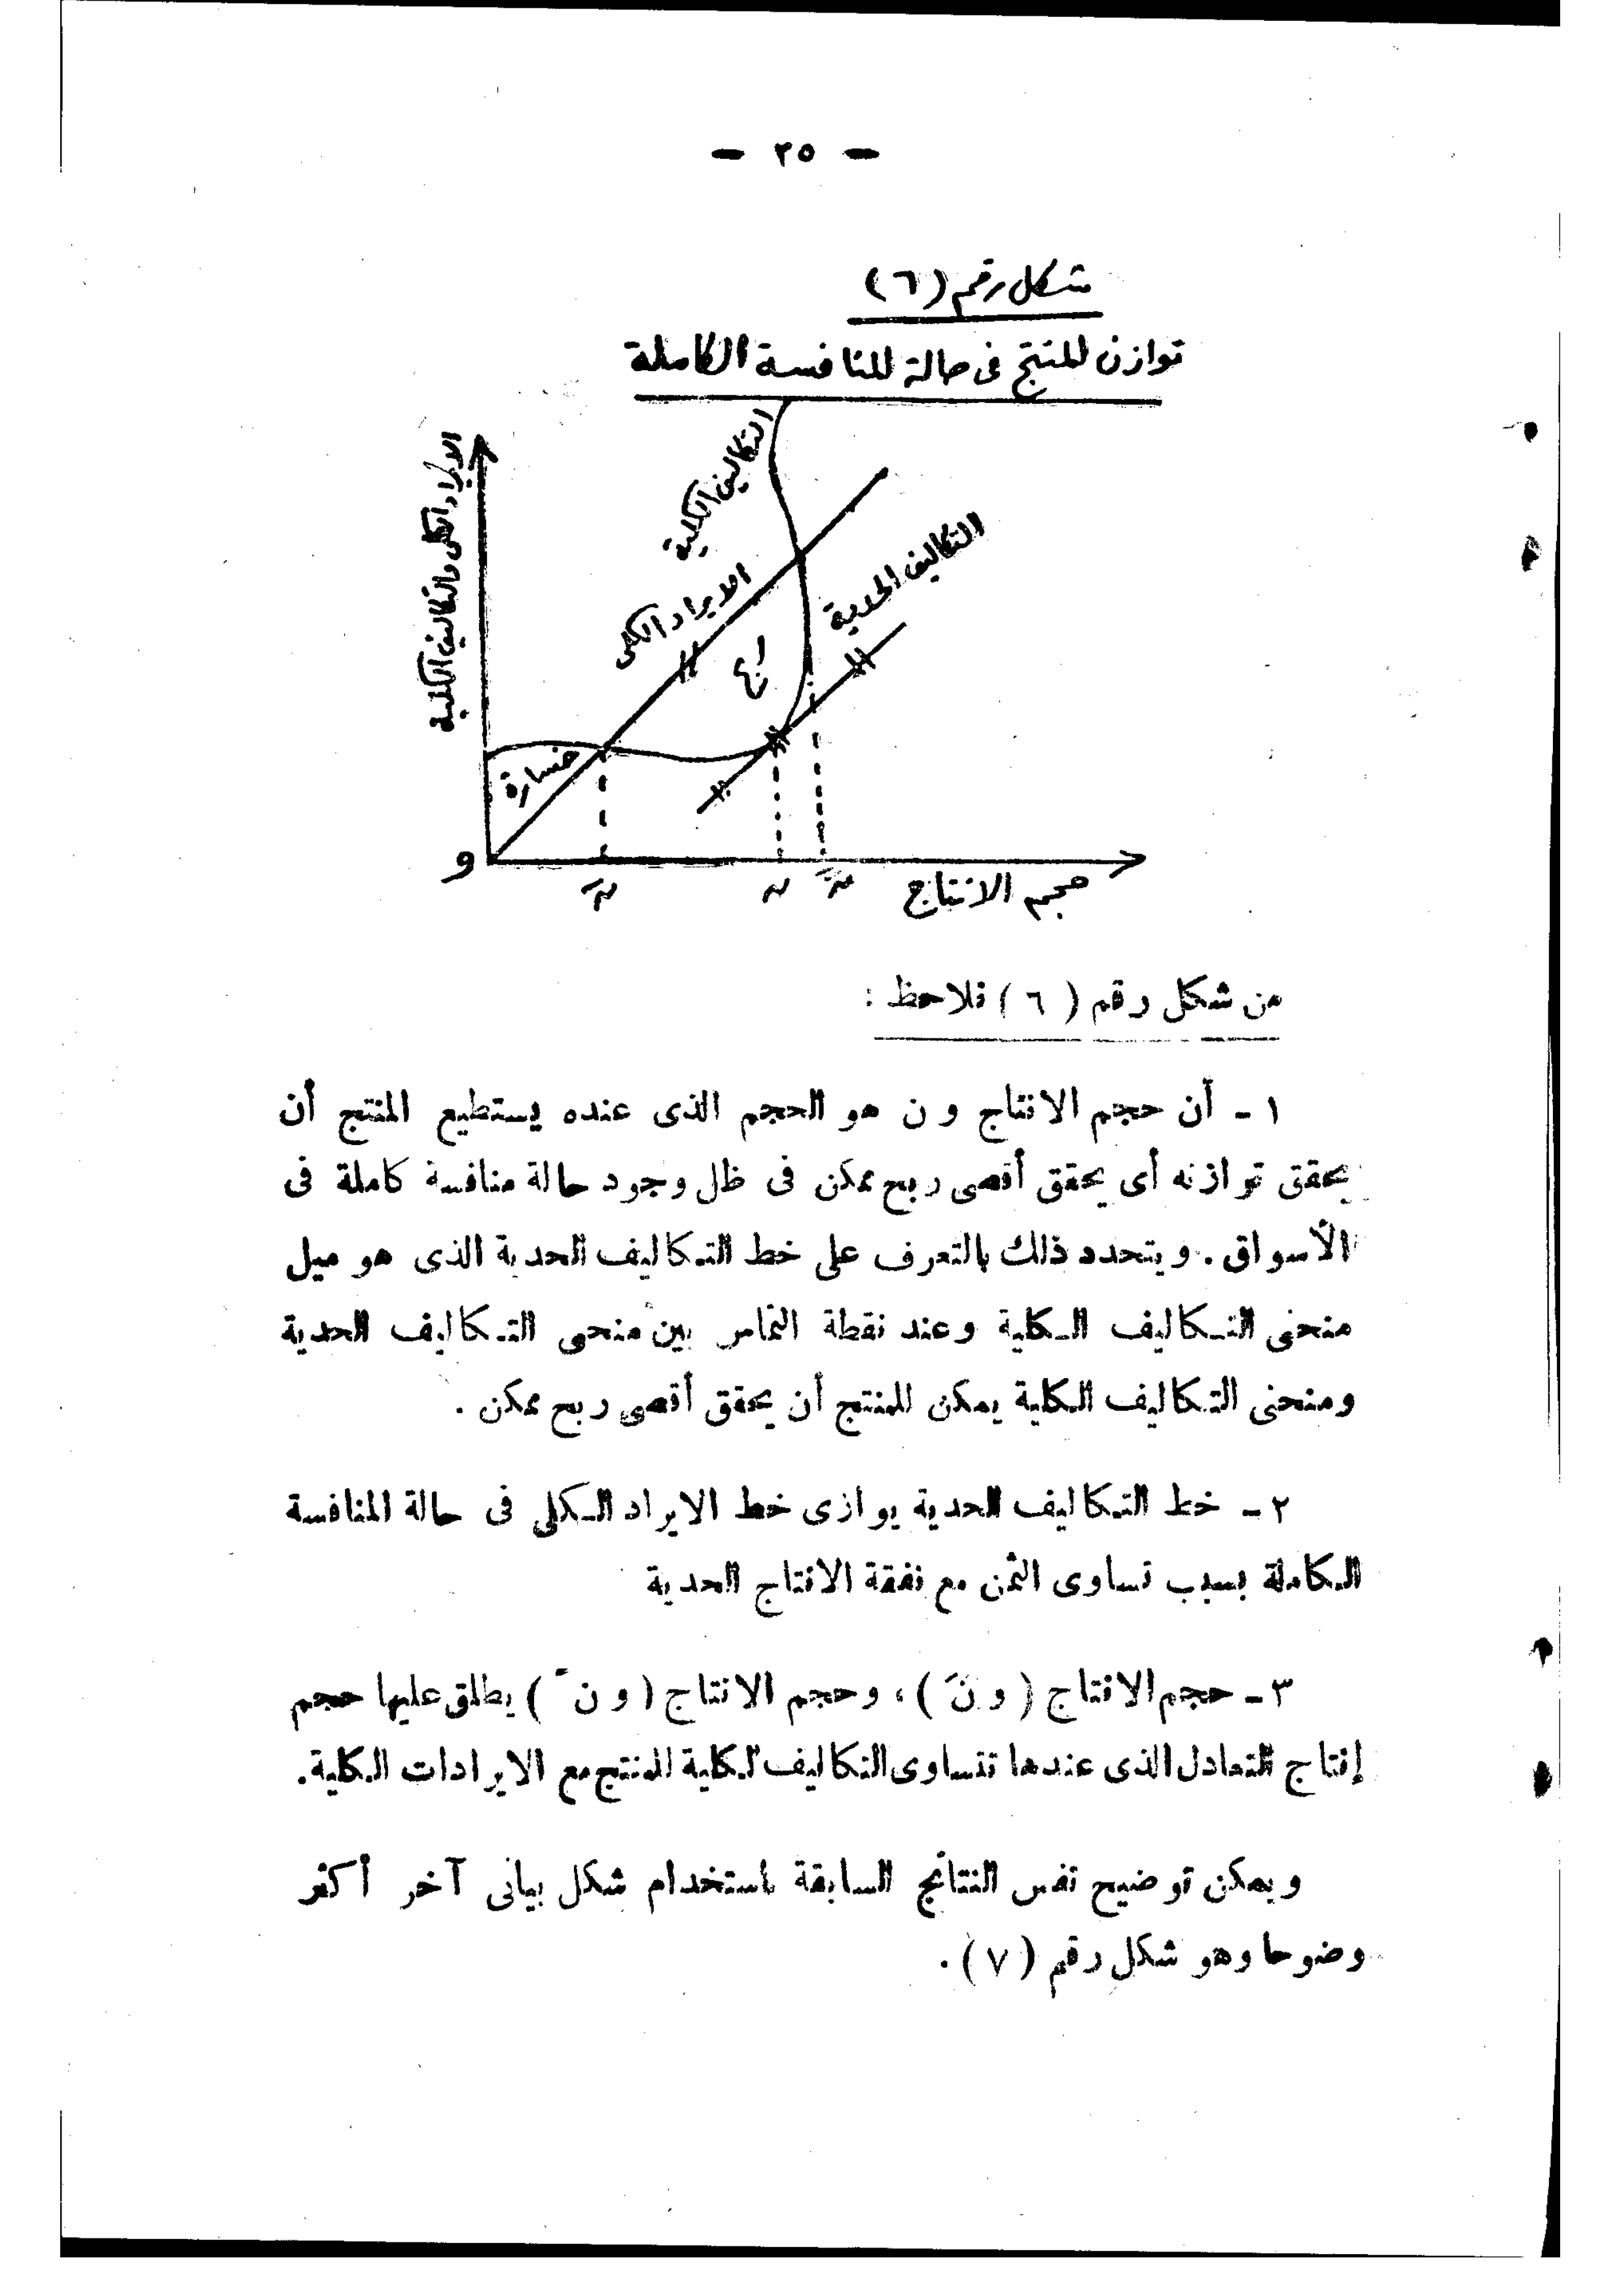 — ٢٥ —
شكل رقم (٦)
توازن المنتج فى حالة المنافسة الكاملة
الايراد الكلى والتكاليف الكلية
التكاليف الكلية
الايراد الكلى
التكاليف الحدية
خسارة
و
نَ
ن
حجم الانتاج
من شكل رقم ( ٦ ) نلاحظ :
١ - أن حجم الانتاج و ن هو الحجم الذى عنده يستطيع المنتج أن
يحقق توازنه أى يحقق أقصى ربح ممكن فى ظل وجود حالة منافسة كاملة فى
الأسواق . ويتحدد ذلك بالتعرف على خط التكاليف الحدية الذى هو ميل
منحنى التكاليف الكلية وعند نقطة التماس بين منحى التكاليف الحدية
ومنحنى التكاليف الكلية يمكن للمنتج أن يحقق أقصى ربح ممكن .
٢ - خط التكاليف الحدية يوازى خط الايراد الكلى فى حالة المنافسة
الكاملة بسبب تساوى الثمن مع نفقة الانتاج الحدية
٣ - حجم الانتاج ( و نَ ) ، وحجم الانتاج ( و ن ) يطلق عليها حجم
إنتاج التعادل الذى عندها تتساوى التكاليف الكلية للمنتج مع الايرادات الكلية.
ويمكن توضيح نفس النتائج السابقة باستخدام شكل بيانى آخر أكثر
وضوحا وهو شكل رقم ( ٧ ) .